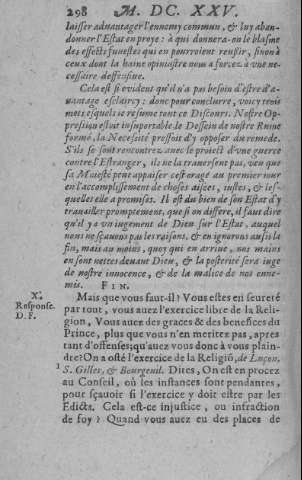 298 M. DC. XXV.
laisser aduantager l'ennemy commun, & luy aban-
donner l'Estat en proye : à qui donnera-on le blasme
des effects funestes qui en pourroient reussir, sinon à
ceux dont la haine opiniastre nous a forcez à vne ne-
cessaire deffensiue.
Cela est si euident qu'il n'a pas besoin d'estre d'a-
uantage esclaircy : donc pour conclurre, voicy trois
mots esquels ie resume tout ce Discours. Nostre Op-
pression estoit insuportable. le Dessein de nostre Ruine
formé, la Necessité pressoit d'y opposer du remede.
S'ils se sont rencontrez auec le proiect d'vne guerre
contre l'Estranger, ils ne la trauersent pas, veu que
sa Maiesté peut appaiser cest orage au premier iour
en l'accomplissement de choses aisees, iustes, & les-
quelles elle a promises. Il est du bien de son Estat d'y
trauailler promptement, que si on differe, il faut dire
qu'il y a vn iugement de Dieu sur l'Estat, auquel
nous ne sçauons pas les raisons, & en ignorons aussi la
fin, mais au moins, quoy qui en arriue, nos mains
en sont nettes deuant Dieu, & la posterité sera iuge
de nostre innocence, & de la malice de nos enne-
mis. FIN.
X.e
Response.
D. F.
Mais que vous faut-il ? Vous estes en seureté
par tout, vous auez l'exercice libre de la Reli-
gion, Vous auez des graces & des benefices du
Prince, plus que vous n'en meritez pas, apres
tant d'offenses; qu'auez vous donc à vous plain-
dre? On a osté l'exercice de la Religiõ, de Luçon,
S. Gilles, & Bourgeuil. Dites, On est en procez
au Conseil, où les instances sont pendantes,
pour sçauoir si l'exercice y doit estre par les
Edicts. Cela est-ce iniustice, ou infraction
de foy ? Quand vous auez eu des places de